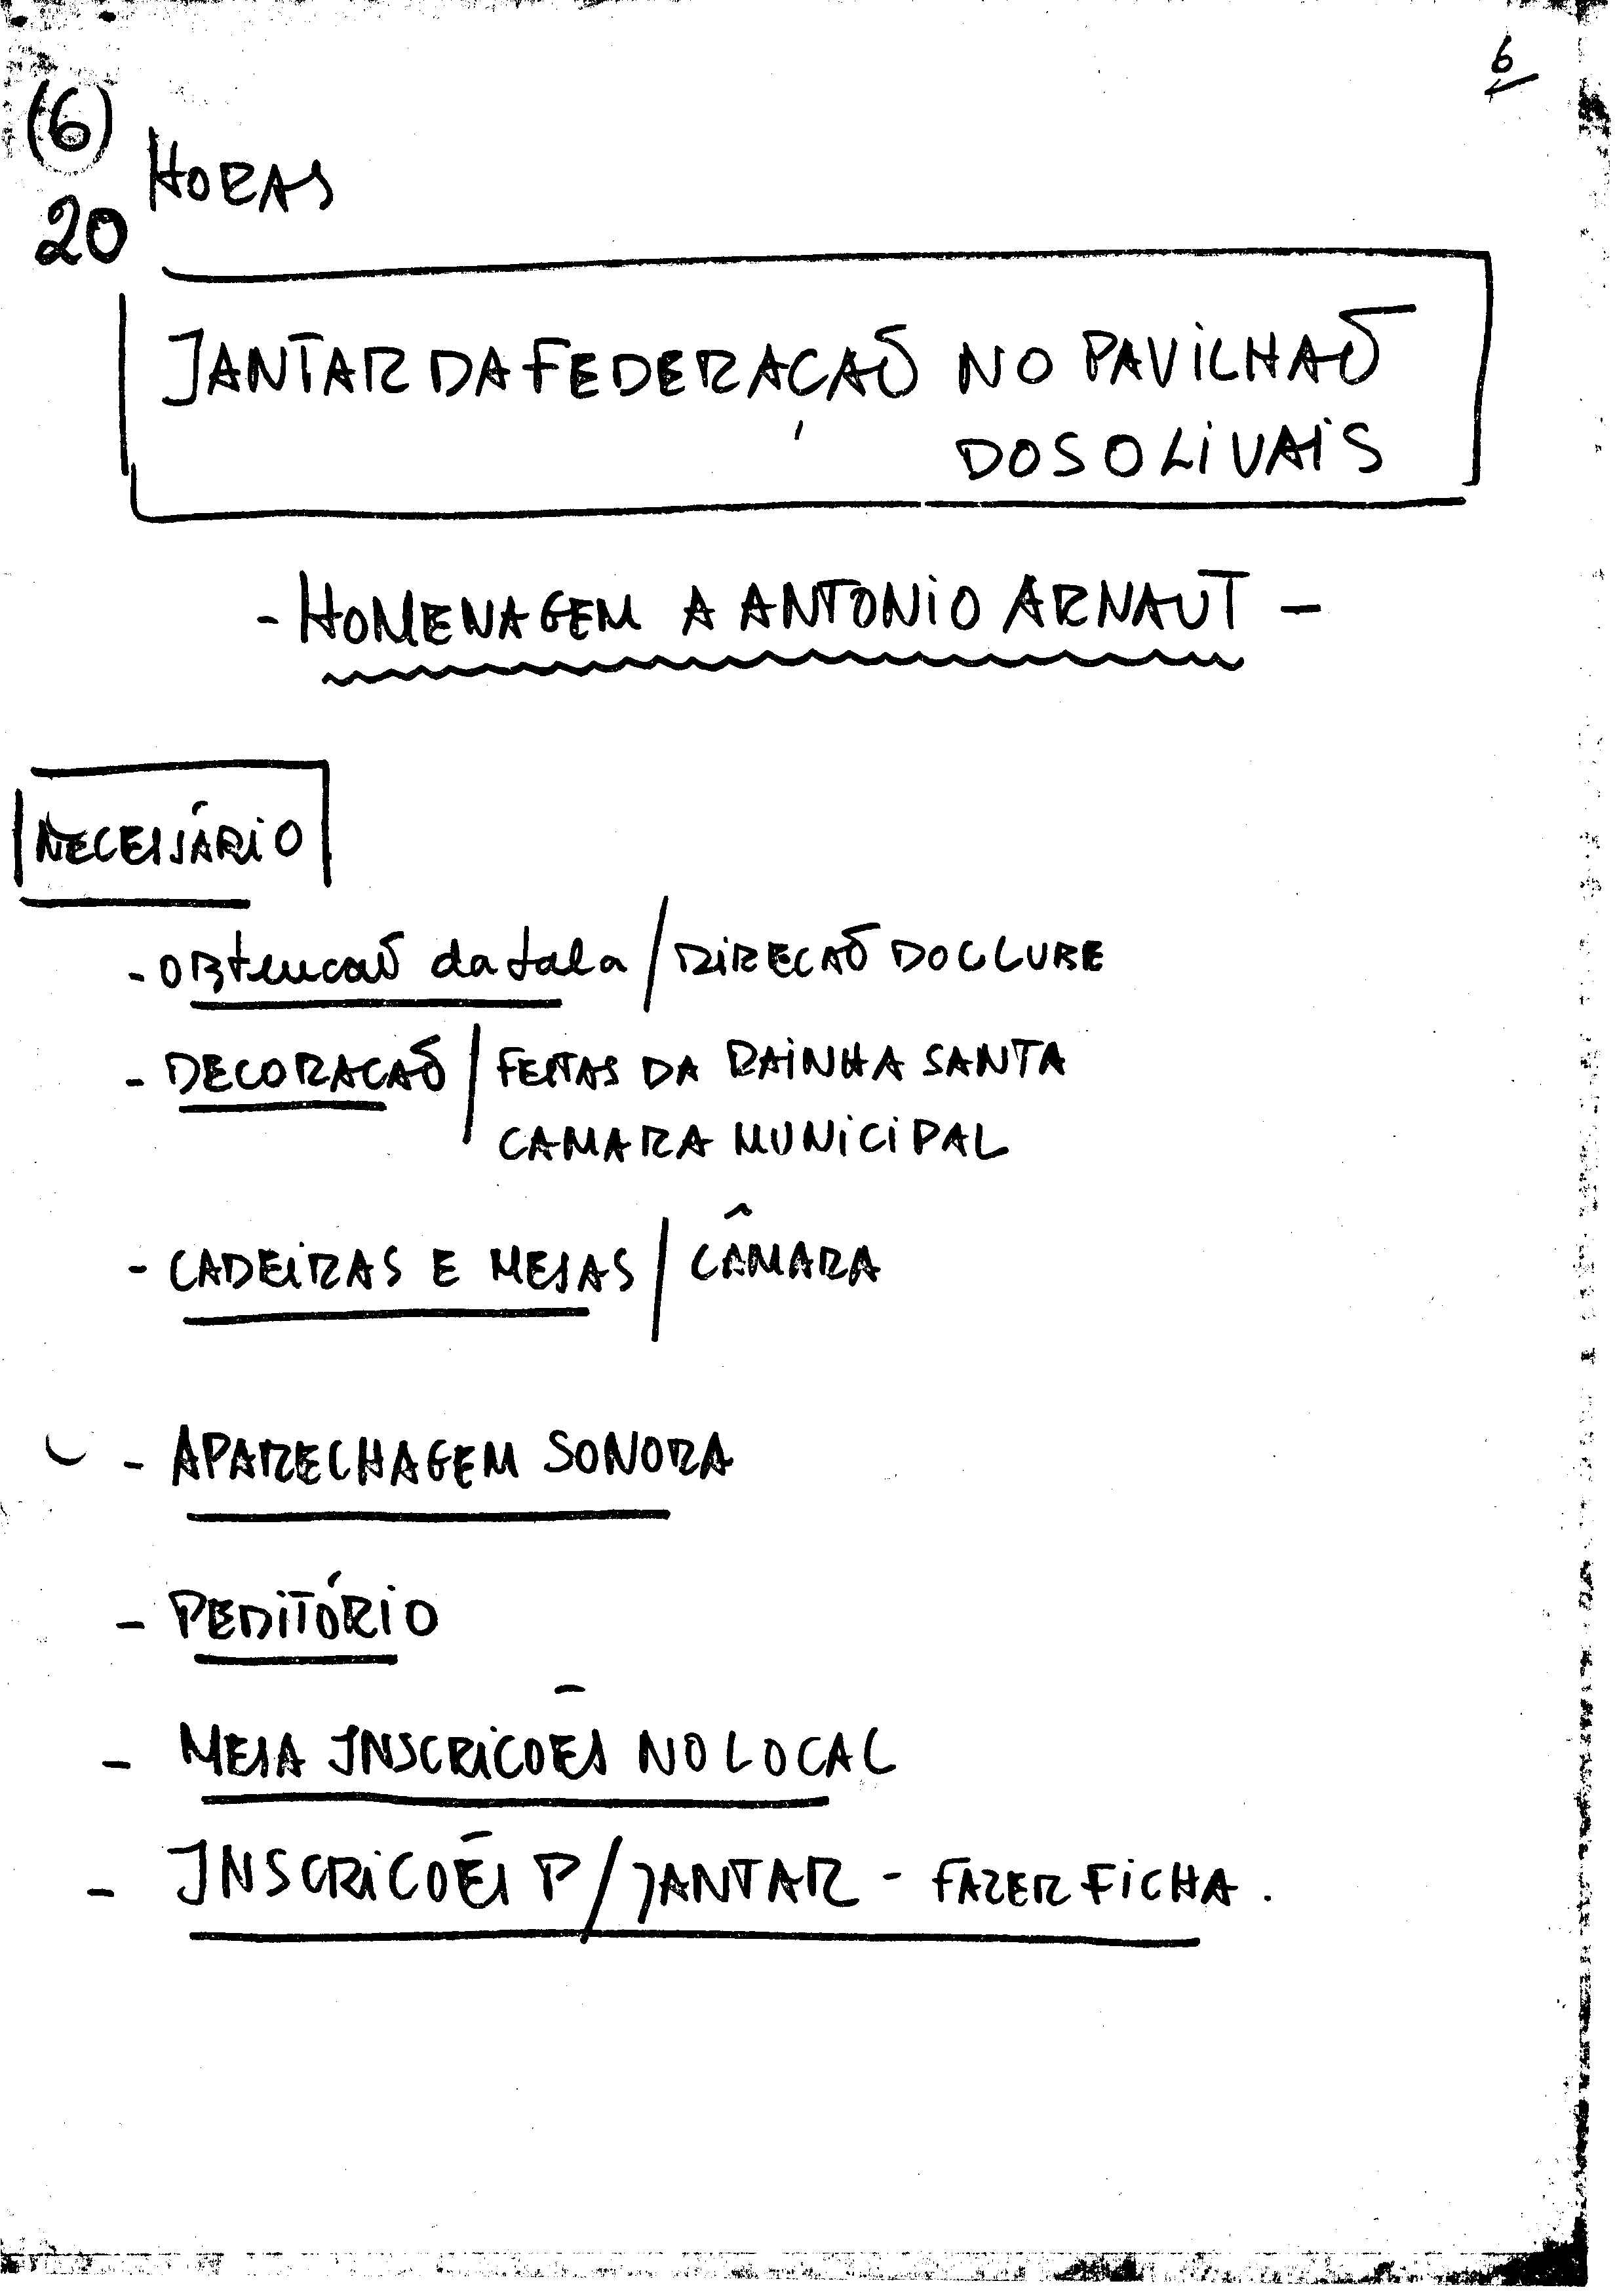 6
(6)
20 HORAS
JANTAR DA FEDERAÇAÕ NO PAVILHAÕ
DOS OLIVAIS
- HOMENAGEM A ANTONIO ARNAUT -
NECESSÁRIO
- OBtencaõ da sala / DIRECAÕ DO CLUBE
- DECORACAÕ / FESTAS DA RAINHA SANTA
CAMARA MUNICIPAL
- CADEIRAS E MESAS / CÂMARA
- APARELHAGEM SONORA
- PEDITÓRIO
- MESA INSCRICÕES NO LOCAL
- INSCRICÕES P/JANTAR - FAZER FICHA.